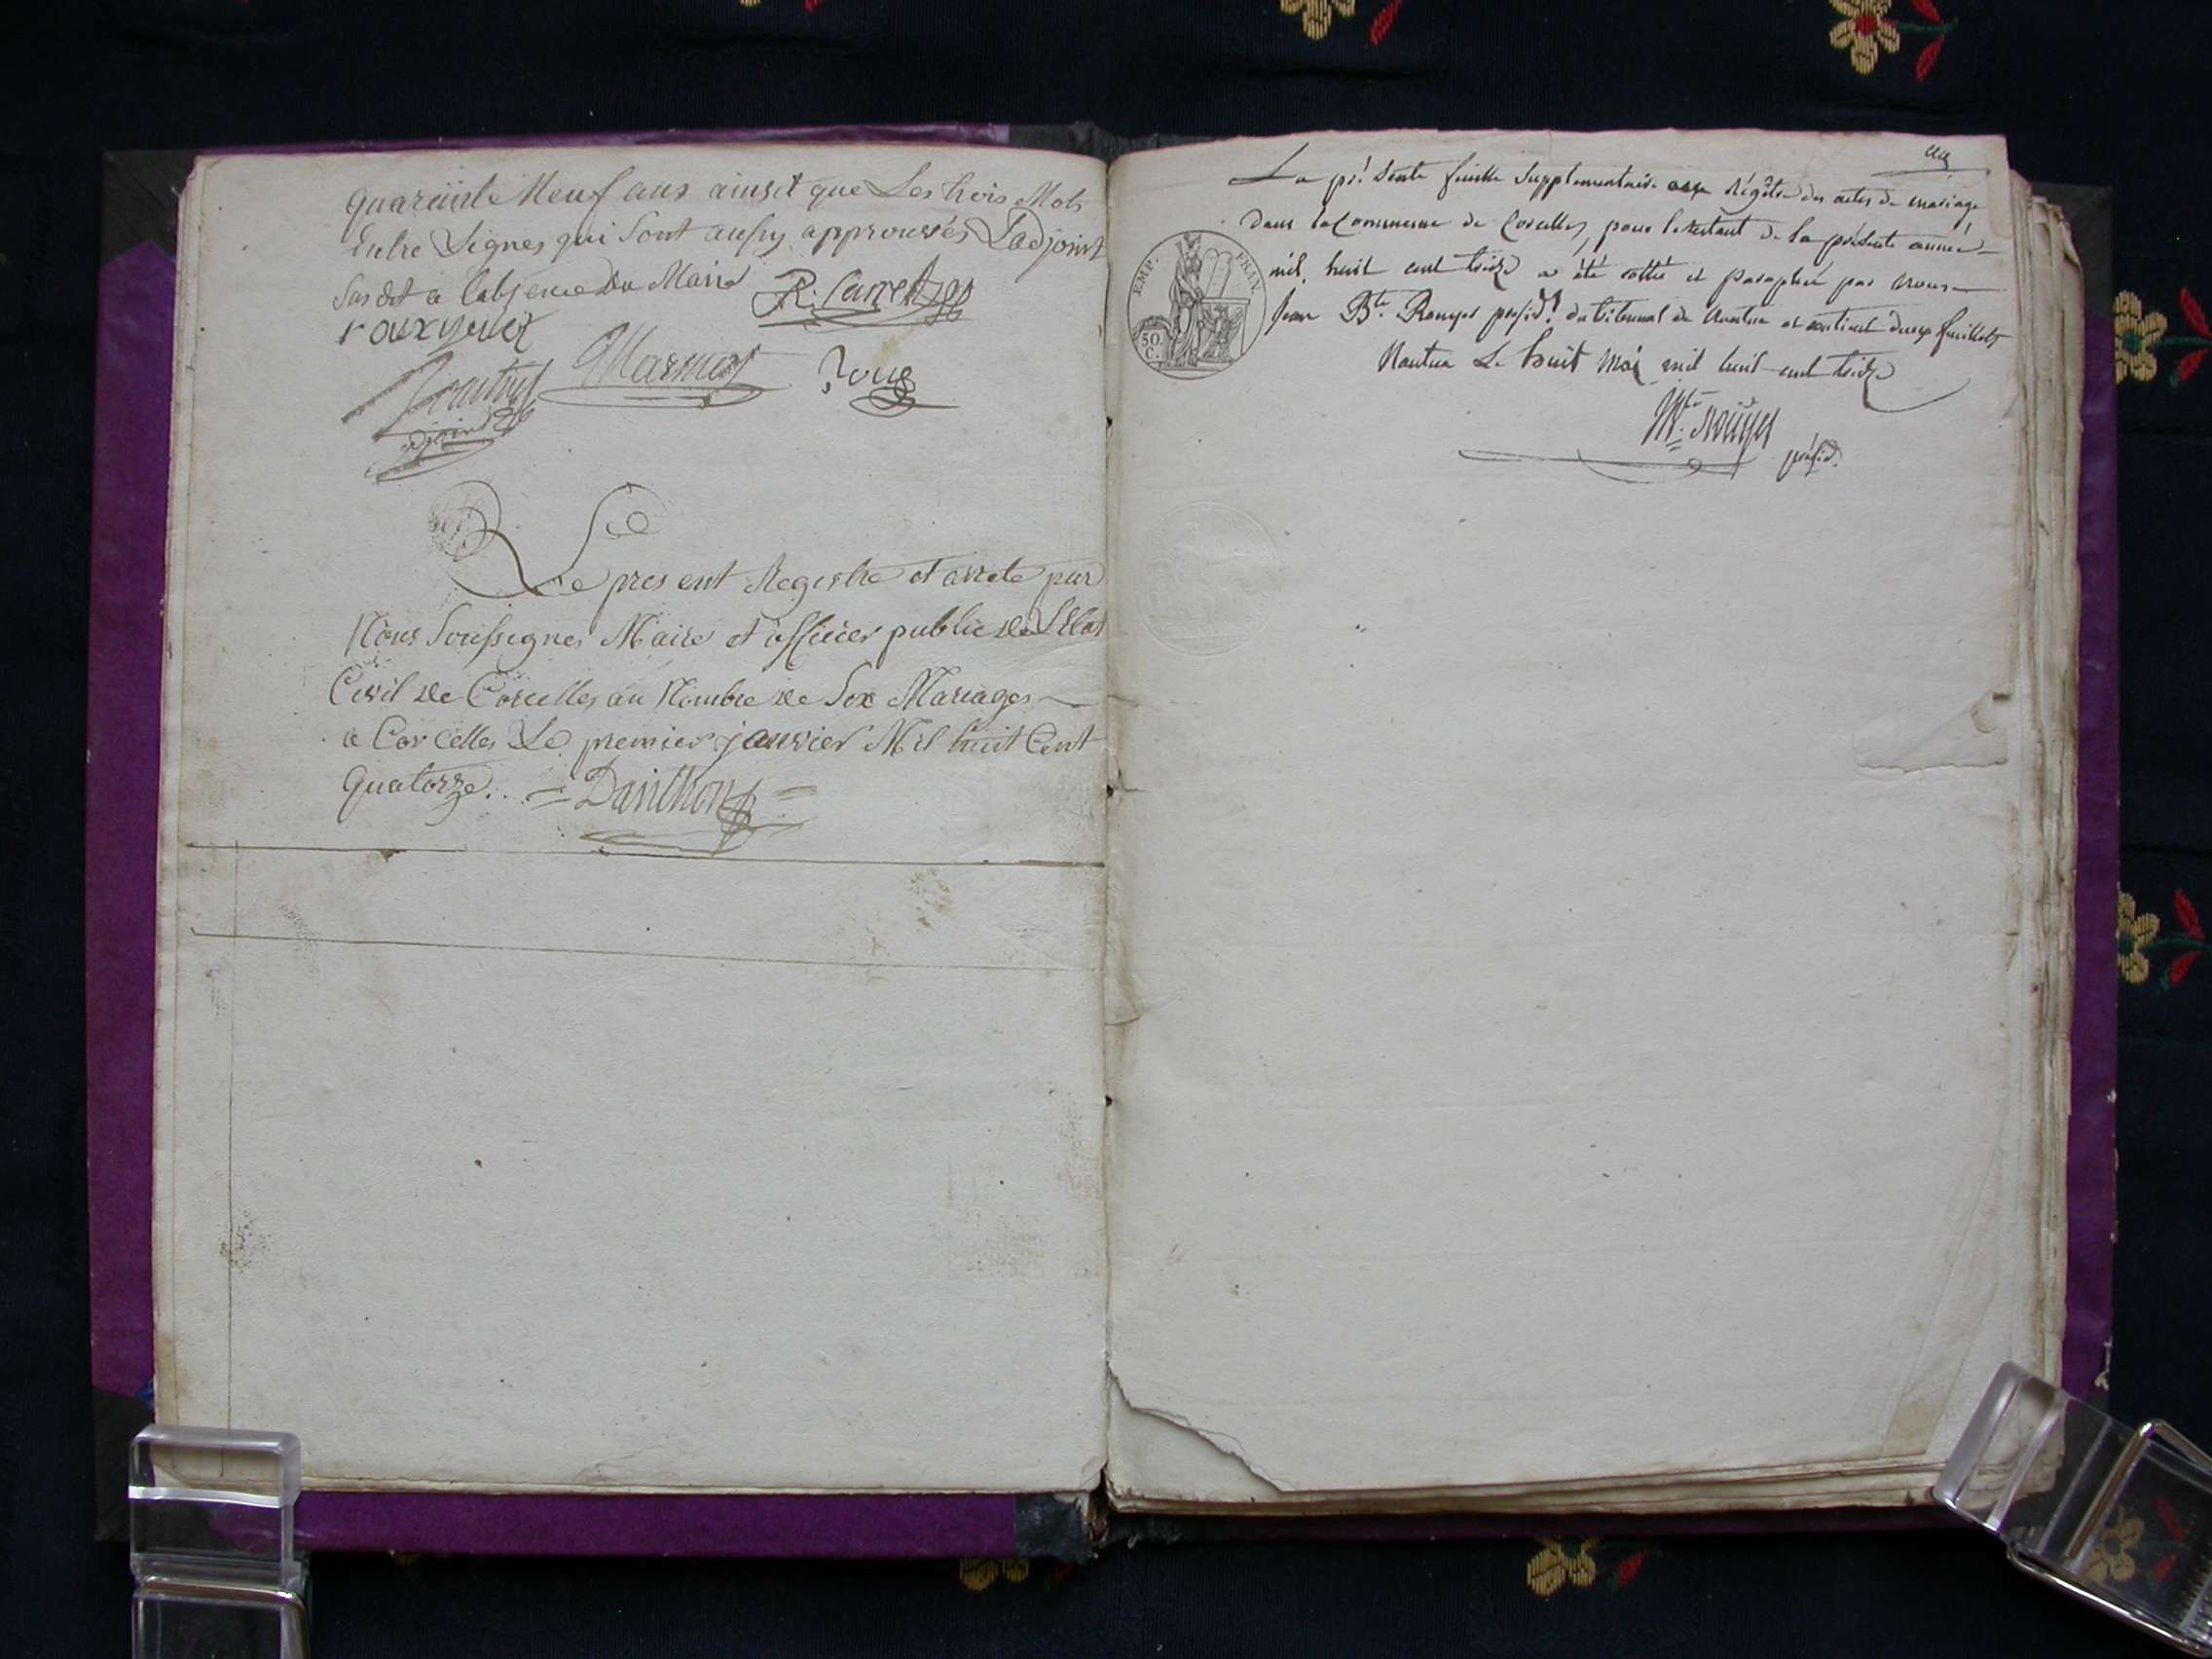 quarante Neuf ans ainsit que Les trois Mots
Entre Lignes qui Sont aussy approuvés Ladjoint
Susdit a labsence Du Maire R. Carret
rouxguer
Marmier Roux
adjoint
Le present Registre et arrete par
Nous Soussignes Maire et officier public de L'Etat
Civil de Corcelles au Nombre de Six Mariages
a Corcelles Le premier janvier Mil huit Cent
Quatorze. Danthon
un
La présente feuille Supplementaire aux Régitre des actes de mariage
dans la Commune de Corcelles, pour le restant de la présente année
mil huit cent treize a été cottée et paraphée par nous
Jean Bte. Rouyer présidt. du tribunal de Nantua et contient deux feuillets
Nantua Le huit Mai mil huit cent treize
Rouyer
présid.
EMP. FRAN.
50 C.